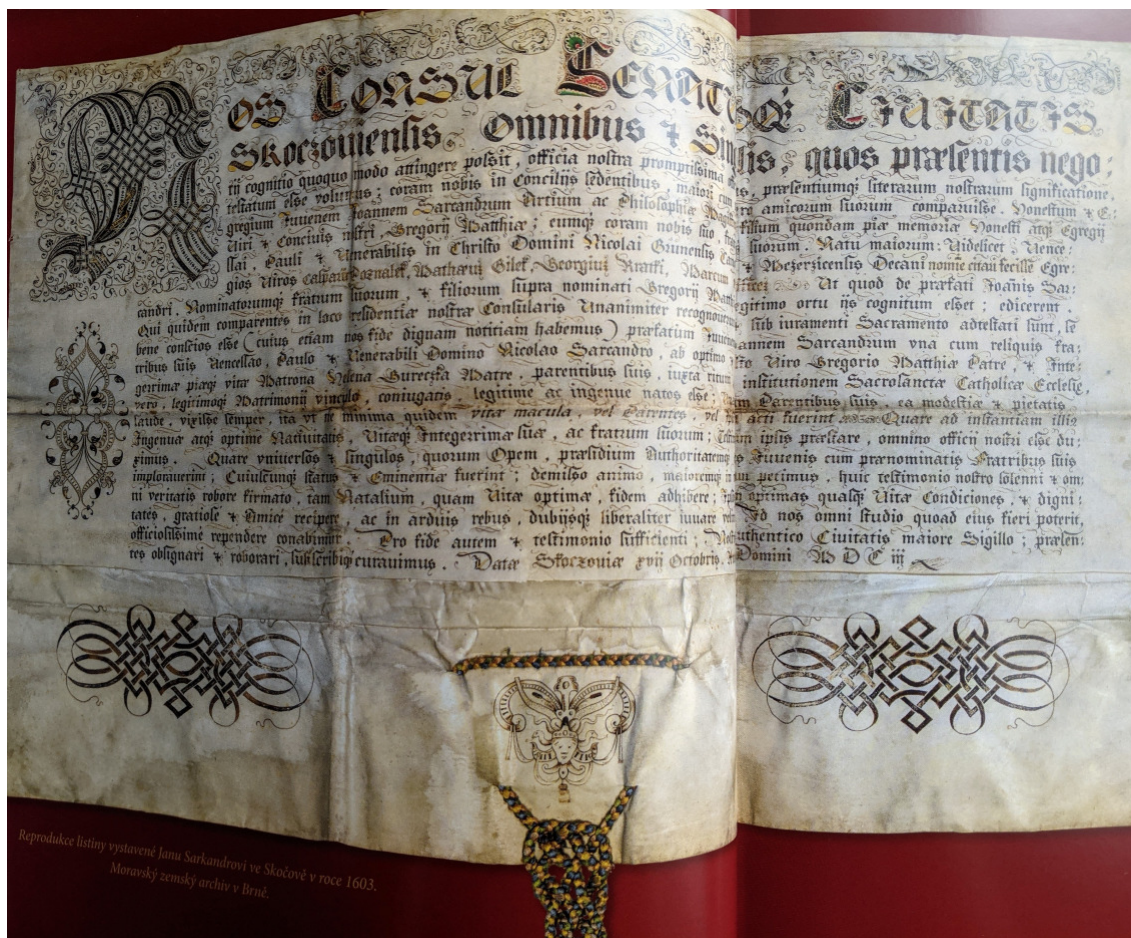 NOS CONSUL SENATUSQꝫ CIUITATIS
Skoczouiensis. Omnibus & Singulis, quos præsentis nego:
tij cognitio quoquo modo attingere possit, officia nostra promptissima præsentiumqꝫ literarum nostrarum significatione,
testatum esse volumus; coram nobis in Concilijs sedentibus, maiori cum amicorum suorum comparuisse. Honestum & E:
gregium Iuuenem Joannem Sarcandrum Artium ac Philosophiæ filium quondam piæ memoriæ Honesti atqꝫ Egregij
Uiri & Conciuis nostri, Gregorij Matthiæ, eumqꝫ coram nobis suo, suorum. Natu maiorum: Uidelicet, Uence:
slai, Pauli & Uenerabilis in Christo Domini Nicolai & Mezerzicensis Decani nomine citari fecisse Egre:
gios Uiros Matthæum Gilek, Georgium Marcum Ut quod de præfati Joañis Sar:
candri, Nominatorumqꝫ fratrum suorum, & filiorum supra nominati Gregorij legitimo ortu ijs cognitum esset; edicerent.
Qui quidem comparentes in loco residentiæ nostræ Consularis Unanimiter sub iuramenti Sacramento adtestati sunt, se
bene conscios esse (cuius etiam nos fide dignam notitiam habemus) præfatum Joannem Sarcandrum vna cum reliquis fra:
tribus suis Uenceslao, Paulo & Uenerabili Domino Nicolao Sarcandro, ab optimo Uiro Gregorio Matthia Patre, & Inte:
gerrimæ piæqꝫ vitæ Matrona Helena Gureczka Matre, parentibus suis, iuxta ritum institutionem Sacrosanctæ Catholicæ Ecclesiæ,
vero, legitimoqꝫ Matrimonij vinculo, coniugatis, legitime ac ingenue natos esse; Parentibus suis, ea modestia & pietatis
laude, vixisse semper, ita vt ne minima quidem vitæ macula, vel Parentes, vel acti fuerint Quare ad instantiam illius
Ingenuæ atqꝫ optimæ Natiuitatis, Uitæqꝫ Integerrimæ suæ, ac fratrum suorum; ipsis præstare, omnino officij nostri esse du:
ximus. Quare vniuersos & singulos, quorum Opem, præsidium Authoritatemqꝫ Iuuenis cum prænominatis Fratribus suis
implorauerint, Cuiuscunqꝫ status & Eminentiæ fuerint; demisso animo, petimus, huic testimonio nostro solenni & om:
ni veritatis robore firmato, tam Natalium, quam Uitæ optimæ, fidem adhibere; optimas qualsqꝫ Uitæ Condiciones, & digni:
tates, gratiose & Amice recipere, ac in arduis rebus, dubijsqꝫ liberaliter iuuare Id nos omni studio quoad eius fieri poterit,
officiosissime rependere conabimur. Pro fide autem & testimonio sufficienti; Authentico Ciuitatis maiore Sigillo; præsen:
res obsignari & roborari, curauimus. Datæ Skoczouiæ xvij Octobris. Domini M D C iij
Reprodukce listiny vystavené Janu Sarkandrovi ve Skočově v roce 1603.
Moravský zemský archiv v Brně.